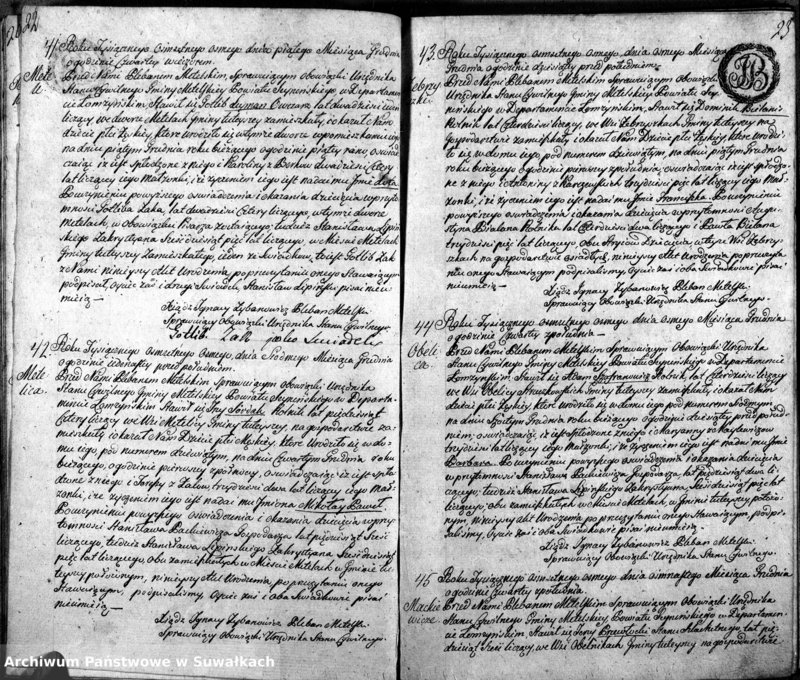 22
41 Roku Tysiącznego osmsetnego osmego dnia piątego Miesiąca Grudnia
o godzinie Czwartey wieczorem
Mete
le
Przed Nami Plebanem Metelskim, Sprawuiącym Obowiązki Urzędnika
Stanu Cywilnego Gminy Metelskiey Powiatu Seyneńskiego w Departamen
cie Łomżyńskim, Stawił się Gotlib Zyman Owczarz lat dwadzieścia
liczący, we dworze Metelach Gminy tuteyszey zamieszkały, i okazał Nam
Dziecie płci Żyskiey, które urodziło się w tymże dworze
na dniu piątym Grudnia roku bieżącego o godzinie piątey rano, oswiad
czaiąc iż iest spłodzone z niego i Karoliny z dwadzieścia cztery
lat liczącey iego Małżonki, i że życzeniem iego iest nadać mu Imie
Po uczynieniu powyższego oświadczenia i okazania dziecięcia w przy
tomności Gotliba Laka, lat dwadzieścia Cztery liczącego, w tymże dworze
Metelach, w Obowiązku Pisarza zostaiącego, tudzież Stanisława Lipiń
skiego Zakrystyana Sześćdziesiąt pięć lat liczącego, w Mieście Metelach
Gminy tuteyszey Zamieszkałego, ieden ze Świadków, to iest Gotlib Lak
z Nami ninieyszy Akt Urodzenia, po przeczytaniu onego Stawaiącym
podpisał, Oyciec zaś i drugi Świadek Stanisław Lipiński pisać nie u
mieią —
Xiądz Ignacy Zybanowicz Pleban Metelski
Sprawuiący Obowiązki Urzędnika Stanu Cywilnego
Gotlib Lak jako Swiadek
42. Roku Tysiącznego osmsetnego osmego, dnia Siodmego Miesiąca Grudnia
o godzinie iedenastey przed południem.
Mete
lica.
Przed Nami Plebanem Metelskim, Sprawuiącym Obowiązki Urzędnika
Stanu Cywilnego Gminy Metelskiey Powiatu Seyneńskiego w Departa
mencie Łomżyńskim Stawił się Jerzy Jordak Rolnik lat pięćdziesiąt
Cztery liczący we Wsi Metelicy Gminy tuteyszey, na gospodarstwie za
mieszkały i okazał Nam Dziecie płci Męskiey, które Urodziło się w do
mu iego, pod numerem dziewiątym, na dniu Czwartym Grudnia roku
bieżącego, o godzinie pierwszey z północy, oswiadczaiąc iż iest spło
dzone z niego i Zofyi z trzydzieści dwa lat liczącey iego Mał
żonki, i że życzeniem iego iest nadać mu Imiona Mikołay Paweł
Po uczynieniu powyższego oświadczenia i okazania dziecięcia w przy
tomności Stanisława Paszkiewicza Gospodarza lat pięćdziesiąt Sześć
liczącego, tudzież Stanisława Lipińskiego Zakrystyana Sześćdziesiąt
pięć lat liczącego Obu zamieszkałych w Mieście Metelach w Gminie tu
teyszey położonym, ninieyszy Akt Urodzenia po przeczytaniu onego
Stawaiącym, podpisaliśmy, Oyciec zaś i oba Świadkowie pisać
nieumieią —
Xiądz Ignacy Zybanowicz Pleban Metelski
Sprawuiący Obowiązki Urzędnika Stanu Cywilnego.
23
43. Roku Tysiącznego osmsetnego osmego, dnia osmego Miesiąca
Grudnia o godzinie dziesiątey przed południem.
Żebry
szki
Przed Nami Plebanem Metelskim Sprawuiącym Obowiązki
Urzędnika Stanu Cywilnego Gminy Metelskiey Powiatu Sey
neńskiego w Departamencie Łomżyńskim, Stawił się Dominik
Rolnik lat Czterdzieści liczący, we Wsi Żebryszkach Gminy tuteyszey na
gospodarstwie zamieszkały i okazał Nam Dziecie płci Żyskiey, które Urodzi
ło się w domu iego, pod numerem dziewiątym, na dniu piątym Grudnia
roku bieżącego o godzinie pierwszey z południa, oswiadczaiąc iż iest spłodzo
ne z niego i Antoniny z trzydzieści pięć lat liczącey iego Mał
żonki, i że życzeniem iego iest nadać mu Imie Franciszka. Po uczynieniu
powyższego oświadczenia i okazania dziecięcia w przytomności Augu
styna Bielana Rolnika lat Czterdzieści dwa liczącego i Pawła Bielana
trzydzieści pięć lat liczącego, obu Stryiów Dziecięcia, w teyże Wsi Żebry
szkach na gospodarstwie osiadłych, ninieyszy Akt Urodzenia po przeczyta
niu onego Stawaiącym podpisaliśmy, Oyciec zaś i oba Świadkowie pisać
nieumieią —
Xiądz Ignacy Zybanowicz Pleban Metelski
Sprawuiący Obowiązki Urzędnika Stanu Cywilnego.
44 Roku Tysiącznego osmsetnego osmego dnia osmego Miesiąca Grudnia
o godzinie Czwartey z południa —
Obeli
ca.
Przed Nami Plebanem Metelskim Sprawuiącym Obowiązki Urzędnika
Stanu Cywilnego Gminy Metelskiey Powiatu Seyneńskiego w Departamencie
Łomżyńskim Stawił się Adam Rolnik, lat Czterdzieści liczący
we Wsi Obelicy Gminy tuteyszey zamieszkały, i okazał Nam
dziecie płci Żyskiey, które urodziło się w domu iego pod numerem
na dniu szóstym Grudnia roku bieżącego o godzinie dziesiątey przed połud
niem; oswiadczaiąc, iż iest spłodzone z niego i Maryanny z
trzydzieści lat liczącey iego Małżonki, i że życzeniem iego iest nadać mu Imie
Barbara. Po uczynieniu powyższego oświadczenia i okazania dziecięcia
w przytomności Stanisława Paszkiewicza Gospodarza, lat pięćdziesiąt dwa li
czącego; tudzież Stanisława Lipińskiego Zakrystyana, Sześćdziesiąt pięć lat
liczącego, obu zamieszkałych w Mieście Metelach, w Gminie tuteyszey położo
nym, ninieyszy Akt Urodzenia po przeczytaniu onego Stawaiącym, podpi
saliśmy, Oyciec zaś i oba Świadkowie pisać nieumieią —
Xiądz Ignacy Zybanowicz Pleban Metelski
Sprawuiący Obowiązki Urzędnika Stanu Cywilnego.
45 Roku Tysiącznego osmsetnego osmego dnia osmnastego Miesiąca Grudnia
o godzinie Czwartey z południa.
Mackie
wicze
Przed Nami Plebanem Metelskim Sprawuiącym Obowiązki Urzędnika
Stanu Cywilnego Gminy Metelskiey Powiatu Seyneńskiego w Departamen
cie Łomżyńskim, Stawił się Jerzy Stanu Szlacheckiego, lat pię
dziesiąt Sześć liczący, we Wsi Obelnikach Gminy tuteyszey na gospodarstwie
Archiwum Państwowe w Suwałkach